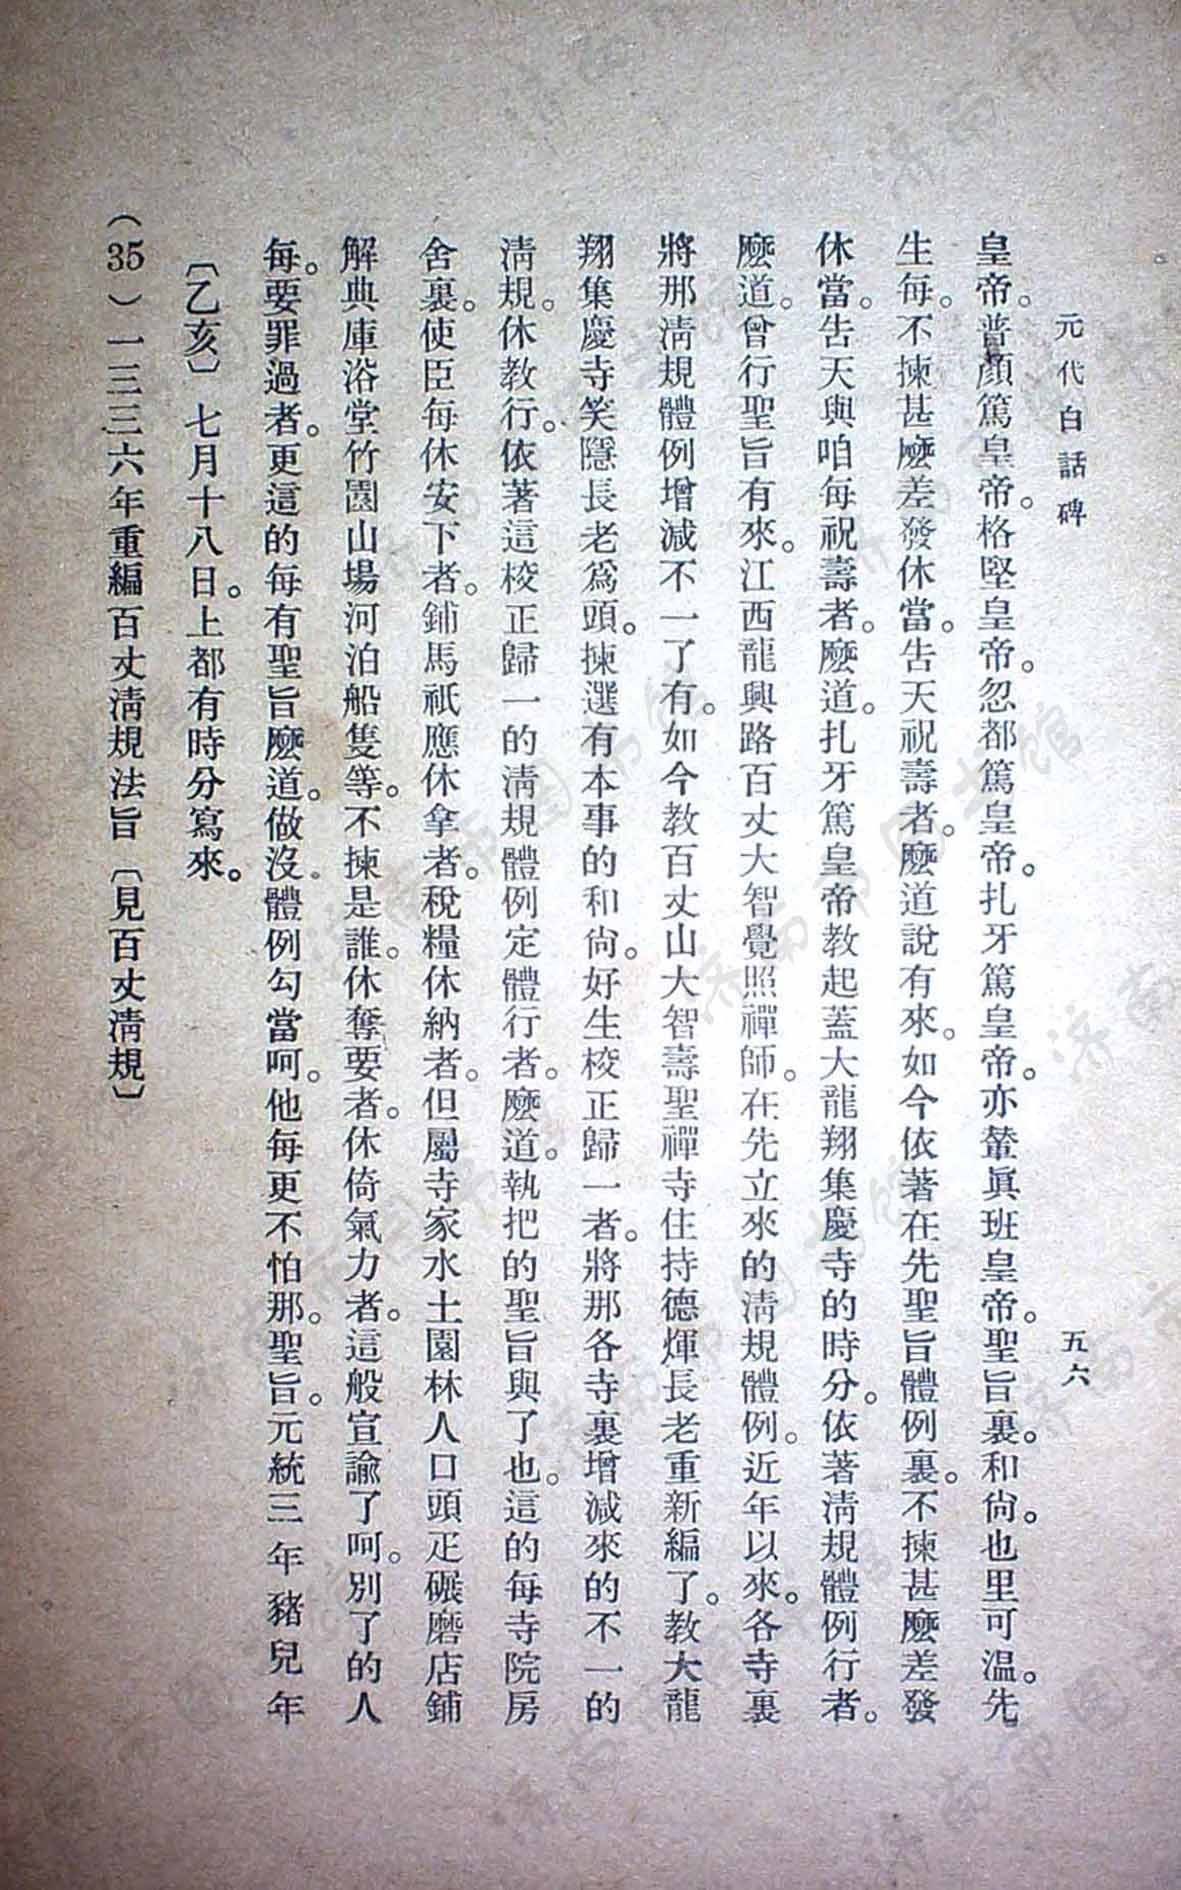 元代白話碑
五六
皇帝。普顏篤皇帝。格堅皇帝。忽都篤皇帝。扎牙篤皇帝。亦輦眞班皇帝。聖旨裏。和尙。也里可温。先
生每。不揀甚麽差發休當。吿天祝壽者。麽道說有來。如今依著在先聖旨體例裏。不揀甚麽差發
休當。吿天與咱每祝壽者。麽道。扎牙篤皇帝教起蓋大龍翔集慶寺的時分。依著淸規體例行者。
麽道。曾行聖旨有來。江西龍興路百丈大智覺照禪師。在先立來的淸規體例。近年以來。各寺裏
將那淸規體例增減不一了有。如今教百丈山大智壽聖禪寺住持德煇長老重新編了。教大龍
翔集慶寺笑隱長老爲頭。揀選有本事的和尙。好生校正歸一者。將那各寺裏增減來的不一的
淸規。休教行。依著這校正歸一的淸規體例定體行者。麽道。執把的聖旨與了也。這的每寺院房
舍裏。使臣每休安下者。鋪馬祇應休拿者。稅糧休納者。但屬寺家水土園林人口頭疋碾磨店鋪
解典庫浴堂竹園山場河泊船隻等。不揀是誰。休奪要者。休倚氣力者。這般宣諭了呵。別了的人
每。要罪過者。更這的每有聖旨麽道。做沒體例勾當呵。他每更不怕那。聖旨。元統三年豬兒年
〔乙亥〕七月十八日。上都有時分寫來。
（35）一三三六年重編百丈淸規法旨〔見百丈淸規〕
济南市图书馆